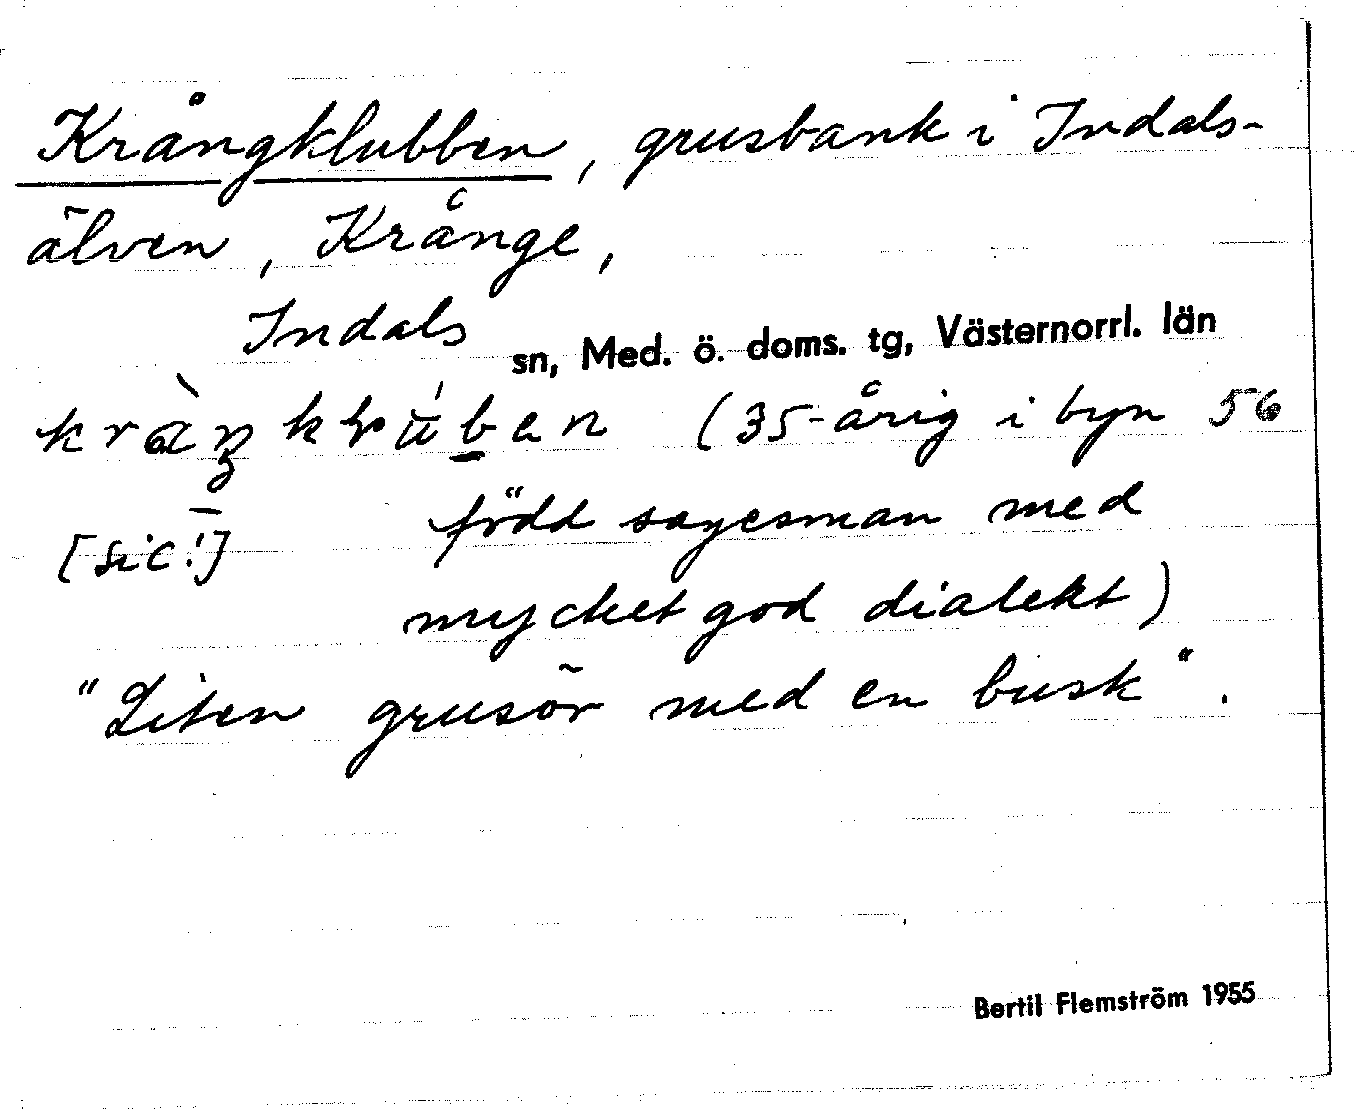 Krångklubben, grusbank i Indals-
älven, Krånge,
Indals sn, Med. ö. doms. tg, Västernorrl. län
(35-årig i byn 56
[sic!] född sagesman med
mycket god dialekt)
"Liten grusör med en busk".
Bertil Flemström 1955